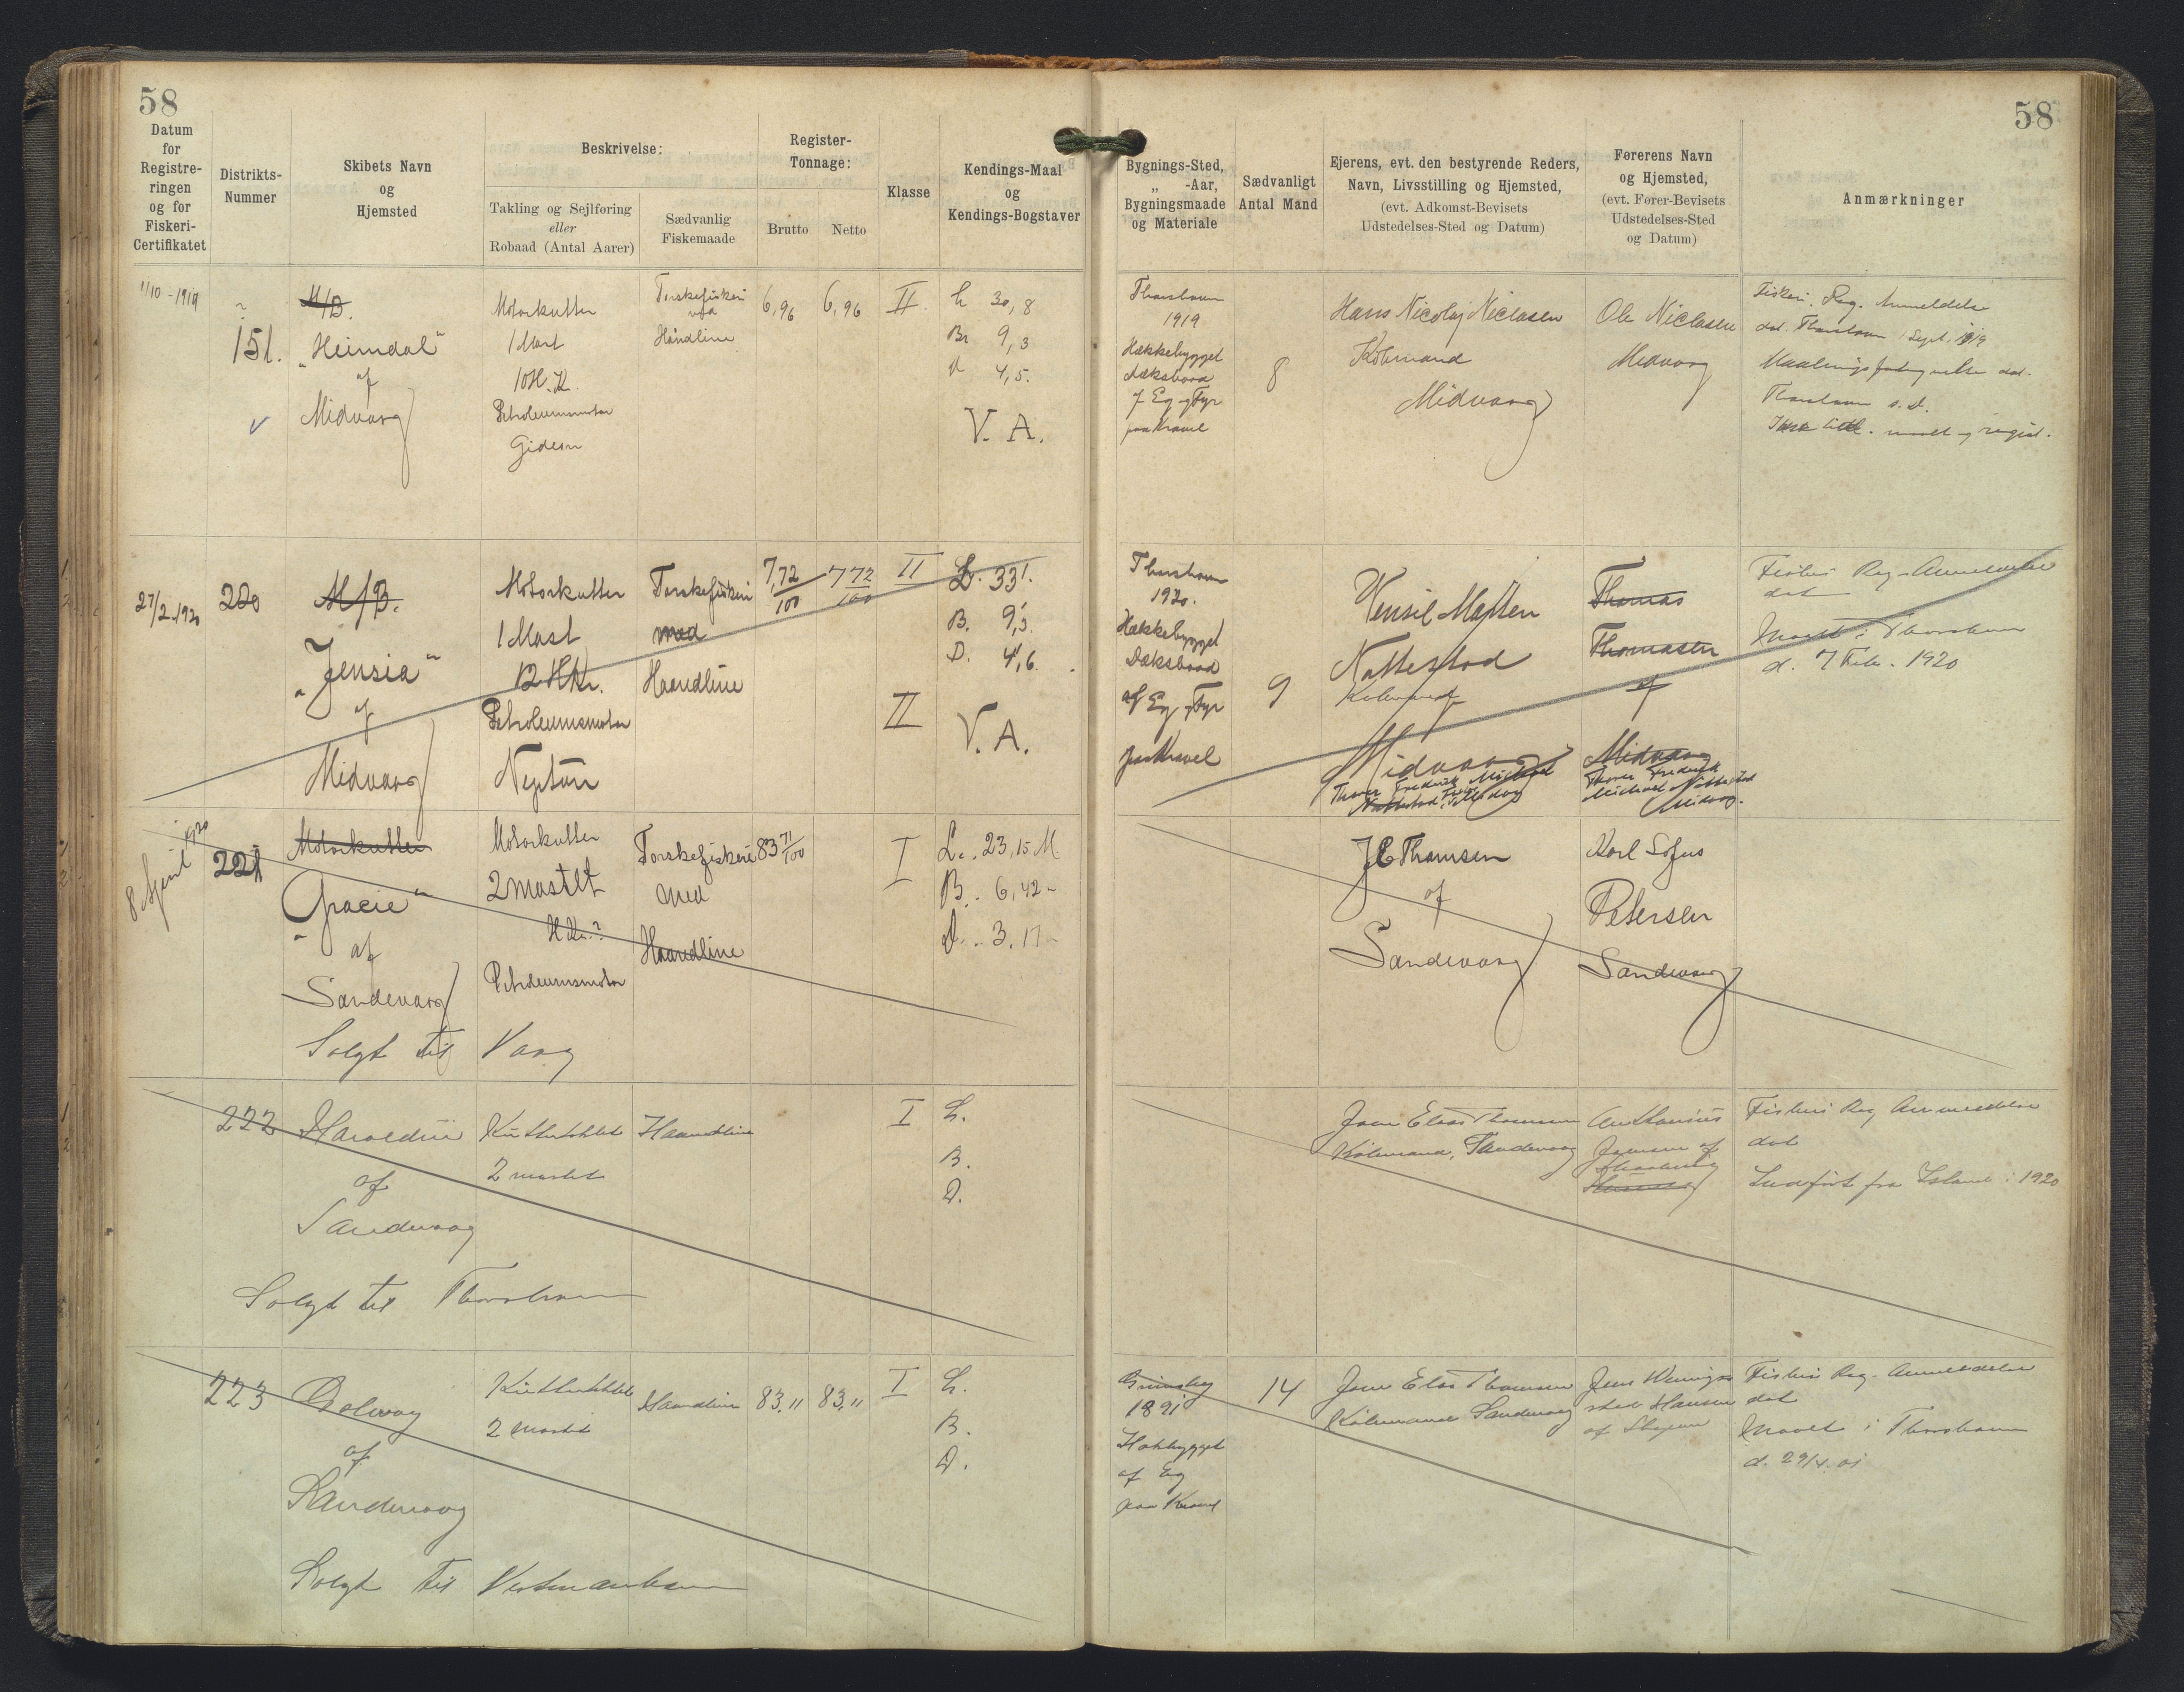 58
58
Datum
for
Registre-
ringen
og for
Fiskeri-
Certifikatet
Distrikts-
Nummer
Skibets Navn
og
Hjemsted
Beskrivelse:
Takling og Sejlføring
eller
Robaad (Antal Aarer)
Sædvanlig
Fiskemaade
Register-
Tonnage:
Brutto
Netto
Klasse
Kendings-Maal
og
Kendings-Bogstaver
Bygnings-Sted,
„ -Aar,
Bygningsmaade
og Materiale
Sædvanligt
Antal Mand
Ejerens, evt. den bestyrende Reders,
Navn, Livsstilling og Hjemsted,
(evt. Adkomst-Bevisets
Udstedelses-Sted og Datum)
Førerens Navn
og Hjemsted,
(evt. Fører-Bevisets
Udstedelses-Sted
og Datum)
Anmærkninger
1/10 - 1919
151.
M/B.
"Heimdal"
af
Midvaag
Motorkutter
1 Mast
10 H.K.
Petroleumsmotor
Gideon
Torskefiskeri
med
Håndline
6,96
6,96
II.
L 30,8
Br 9,3
D 4,5.
V. A.
Thorshavn
1919
Hækkebygget
Dæksbaad
af Eg og Fyr
paa Kravel
8
Hans Nicolaj Niclasen
Købmand
Midvaag
Ole Niclasen
Midvaag
Fiskeri. Reg. Anmeldelse
dat. Thorshavn 1 Sept. 1919
Maalings dat.
Thorshavn s. D.
maalt og regist.
27/2.1920
220
M/B.
"Jensia"
af
Midvaag
Motorkutter
1 Mast
12 HKr.
Petroleumsmotor
Neptun
Torskefiskeri
med
Haandline
7,72/100
7 72/100
II
II
L. 33'.
B. 9,3
D. 4,6.
V. A.
Thorshavn
1920.
Hækkebygget
Dæksbaad
af Eg og Fyr
paa Kravel
9
Wensil Morten
Nattestad
Købmand
Midvaag
Thomas Frederik Michael
Nattestad, Midvaag
Thomas
Thomasen
af
Midvaag
Thomas Frederik
Michael Nattestad
Midvaag.
Fiskeri Reg. Anmeldelse
dat
Maalt i Thorshavn
d. 7 Feb. 1920
8 April 1920
221
Motorkutter
"Gracie"
af
Sandevaag
Solgt til Vaag
Motorkutter
2 mastet
H.Kr.?
Petroleumsmotor
Torskefiskeri
med
Haandline
83 71/100
I
L.. 23,15 M
B.. 6,42 "
D.. 3,17 "
J E Thomsen
af
Sandevaag
Karl Sofus
Petersen
Sandevaag
222
af
Sandevaag
Solgt til Thorshavn
2 mastet
Haandline
I
L.
B.
D.
Joen Elias Thomsen
Købmand, Sandevaag
Joensen af
Fiskeri Reg Anmeldelse
dat
Indført fra Island i 1920
223
af
Sandevaag
Solgt til Vestmanhavn
2 mastet
Haandline
83,11
83,11
I
L.
B.
D.
Grimsby
1891
Hækbygget
af Eg
paa Kravel
14
Joen Elias Thomsen
Købmand Sandevaag
Jens Wenings
sted Hansen
af
Fiskeri Reg. Anmeldelse
dat
Maalt i Thorshavn
d. 29/4.01